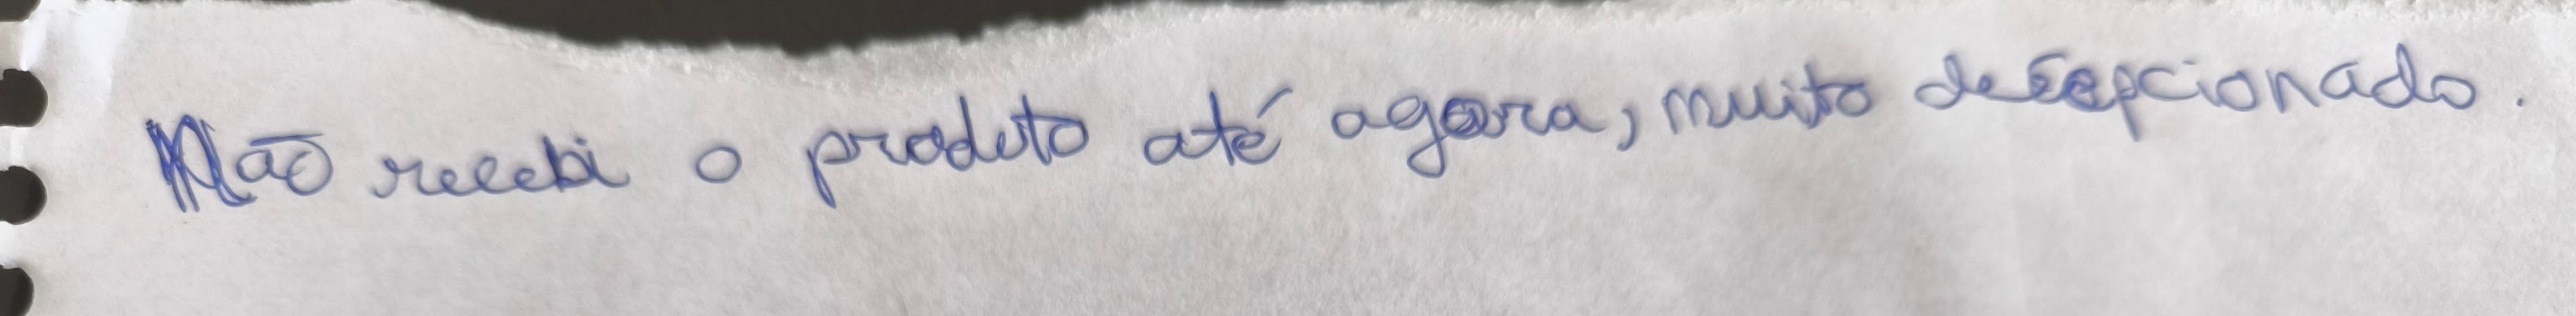 Não recebi o produto até agora, muito decepcionado.